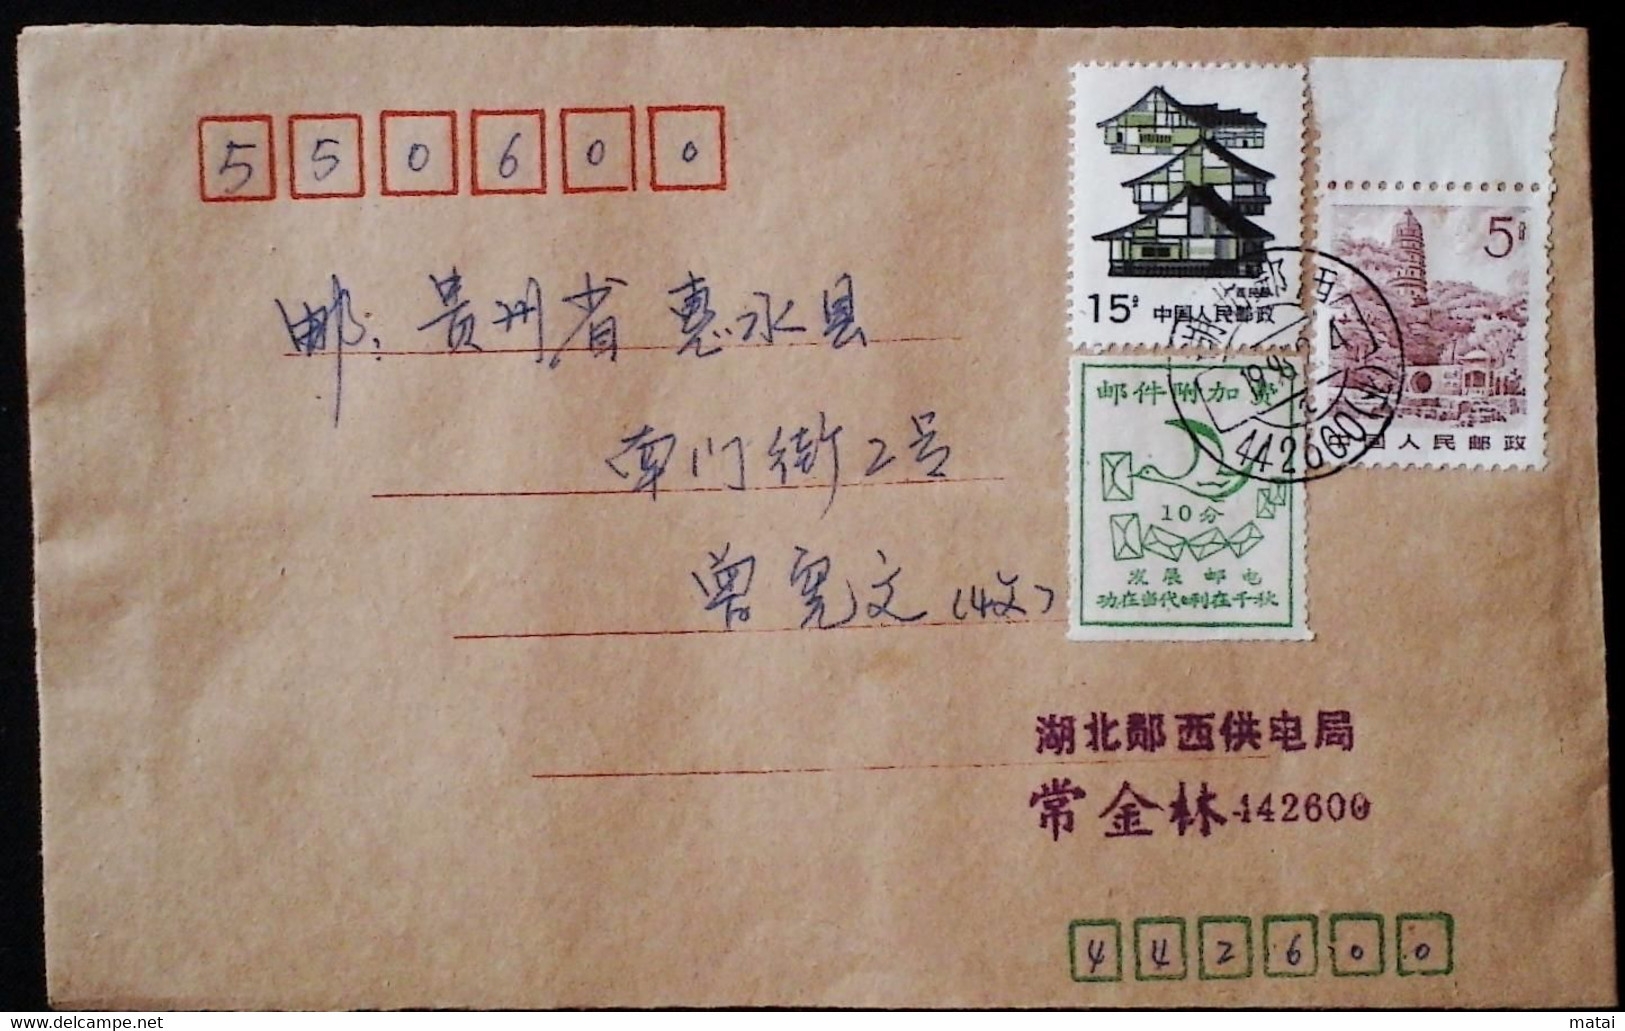 550600
邮:贵州省惠水县
南门街2号
曾宪文(收)
15分 中国人民邮政
5分
中国人民邮政
邮件附加费
10分
发展邮电
功在当代 利在千秋
湖北郧西
442600
湖北郧西供电局
常金林 442600
442600
delcampe.net
matai